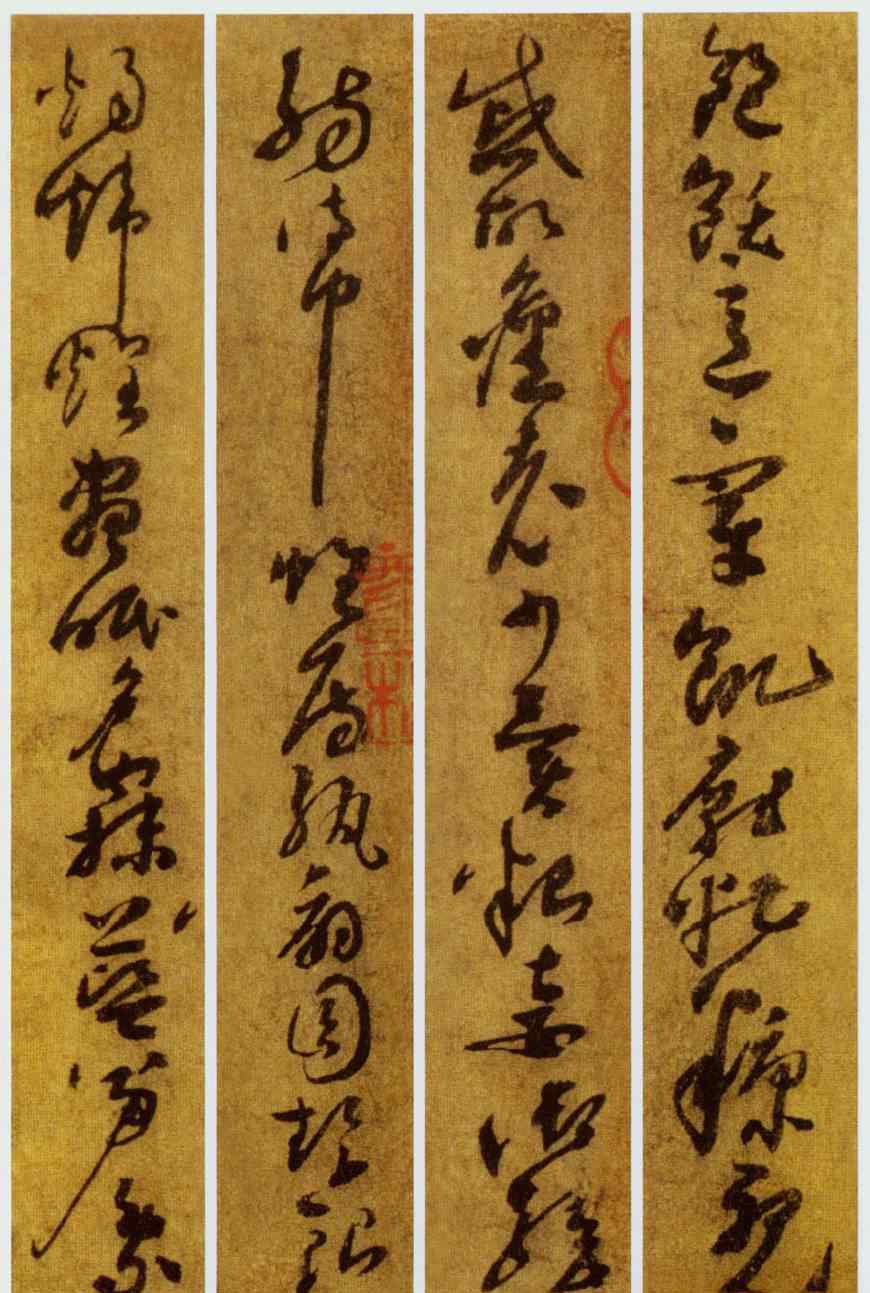 飽飫烹宰飢厭糟糠親
戚故舊老少異糧妾御績
紡侍巾帷房紈扇圓潔銀
燭煒煌晝眠夕寐藍筍象